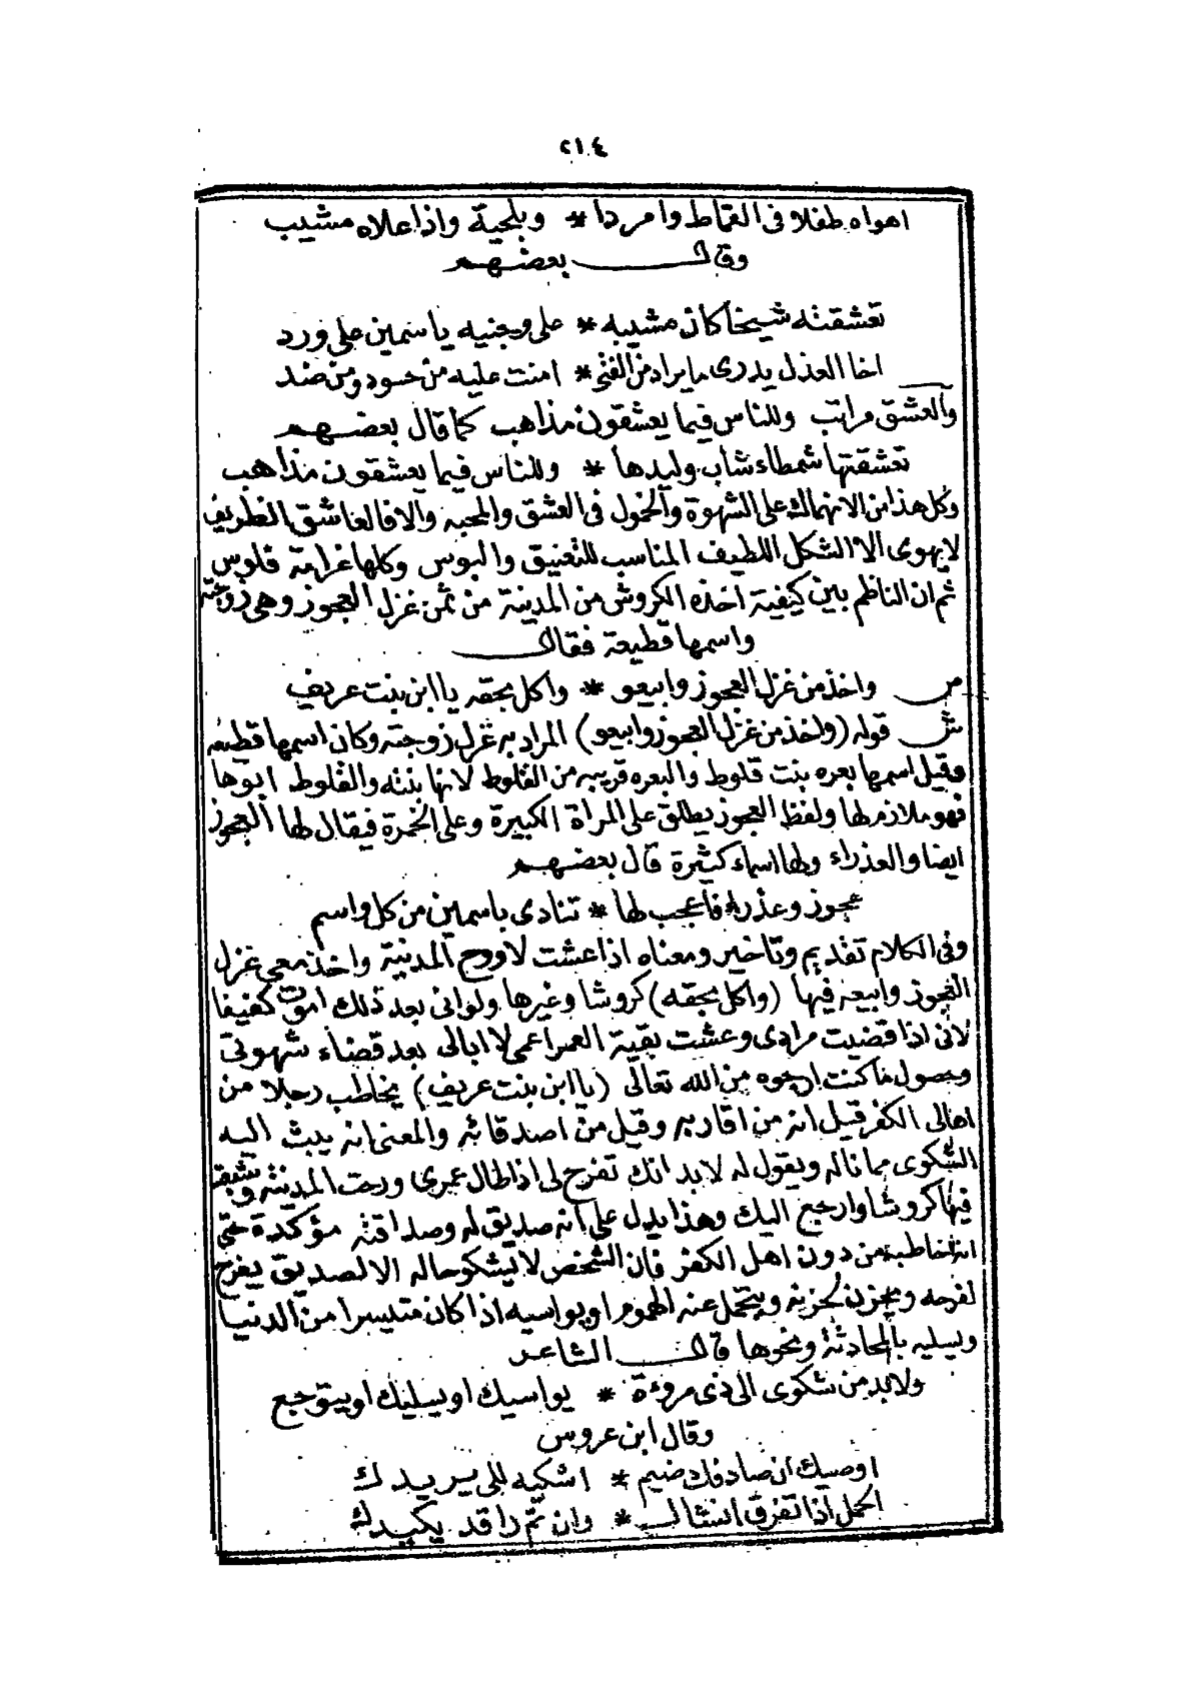 ٢١٤
اهواه طفلا فى القماط وامردا * وبلحية واذا علاه مشيب
وقال بعضهم
تعشقته شيخا كان مشيبه * على وجنيه ياسمين على ورد
اخا العذل يدرى ما يراد من الفتى * امنت عليه من حسود ومن ضد
والعشق مراتب وللناس فيما يعشقون مذاهب كما قال بعضهم
تعشقتها شمطاء شاب وليدها * وللناس فيما يعشقون مذاهب
وكل هذا من الانهماك على الشهوة والخمول فى العشق والمحبه والافالعاشق الظريف
لا يهوى الا الشكل اللطيف المناسب للتعنيق والبوس وكلها غرامة فلوس
ثم ان الناظم بين كيفية اخذه الكروش من المدينة من ثمن غزل العجوز وهى زوجته
واسمها قطيعة فقال
ص واخذ من غزل العجوز وابيعو * واكل بحقه يا ابن بنت عريف
ش قوله (واخذ من غزل العجوز وابيعو) المراد به غزل زوجته وكان اسمها قطيعه
وقيل اسمها بعره بنت قلوط والبعره قريبه من القلوط لانها بنته والقلوط ابوها
فهو ملازم لها ولفظ العجوز يطلق على المراة الكبيرة وعلى الخمرة فيقال لها العجوز
ايضا والعذراء ولها اسماء كثيرة قال بعضهم
عجوز وعذراء فاعجب لها * تنادى باسمين من كل واسم
وفى الكلام تقديم وتاخير ومعناه اذا عشت لاروح المدينة واخذ معى غزل
العجوز وابيعه فيها (واكل بحقه) كروشا وغيرها ولوانى بعد ذلك اموت كفيفا
لانى اذا قضيت مرادى وعشت بقية العمر اعمى لا ابالى بعد قضاء شهوتى
وحصول ما كنت ارجوه من الله تعالى (يا ابن بنت عريف) يخاطب رجلا من
اهالى الكفر قيل انه من اقاربه وقيل من اصدقائه والمعنى انه يبث اليه
الشكوى مما ناله ويقول له لا بد انك تفرح لى اذا طال عمرى ورحت المدينة وشبعت
فيها كروشا وارجع اليك وهذا يدل على انه صديق له وصداقته مؤكدة حتى
انه خاطبه من دون اهل الكفر فان الشخص لا يشكو حاله الا لصديق يفرح
لفرحه ويحزن لحزنه ويتحمل عنه الهموم او يواسيه اذا كان متيسرا من الدنيا
ويسليه بالمحادثة ونحوها قال الشاعر
ولا بد من شكوى الى ذى مروءة * يواسيك او يسليك او يتوجع
وقال ابن عروس
اوصيك ان صادفك ضيم * اشكيه للى يريدك
الحمل اذا تفرق انشال * وان تم راقد يكيدك